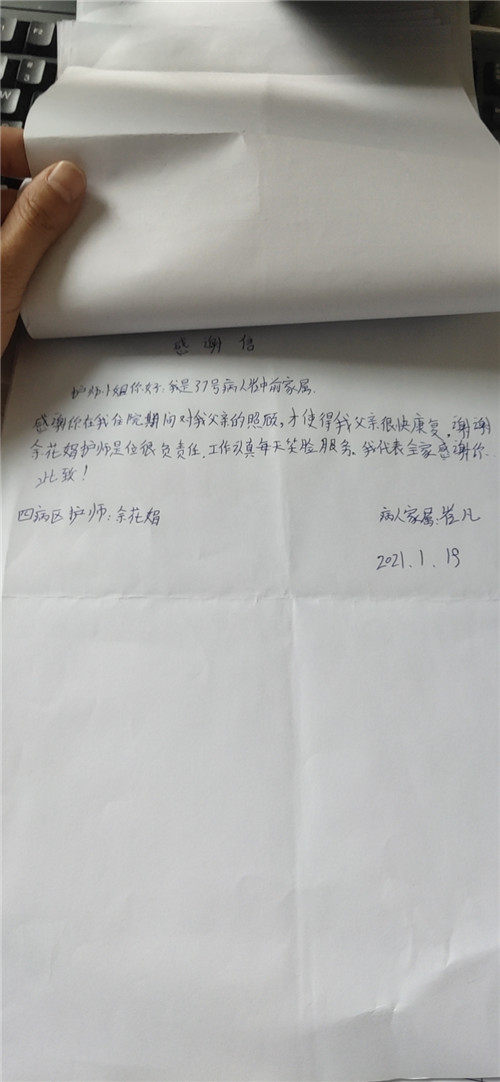 感谢信
护师小姐你好,我是37号病人崔中前家属,
感谢你在我住院期间对我父亲的照顾,才使得我父亲很快康复。谢谢
余花娟护师是位很负责任.工作认真每天笑脸服务。我代表全家感谢你.
此致!
四病区护师:余花娟
病人家属:崔凡
2021.1.19